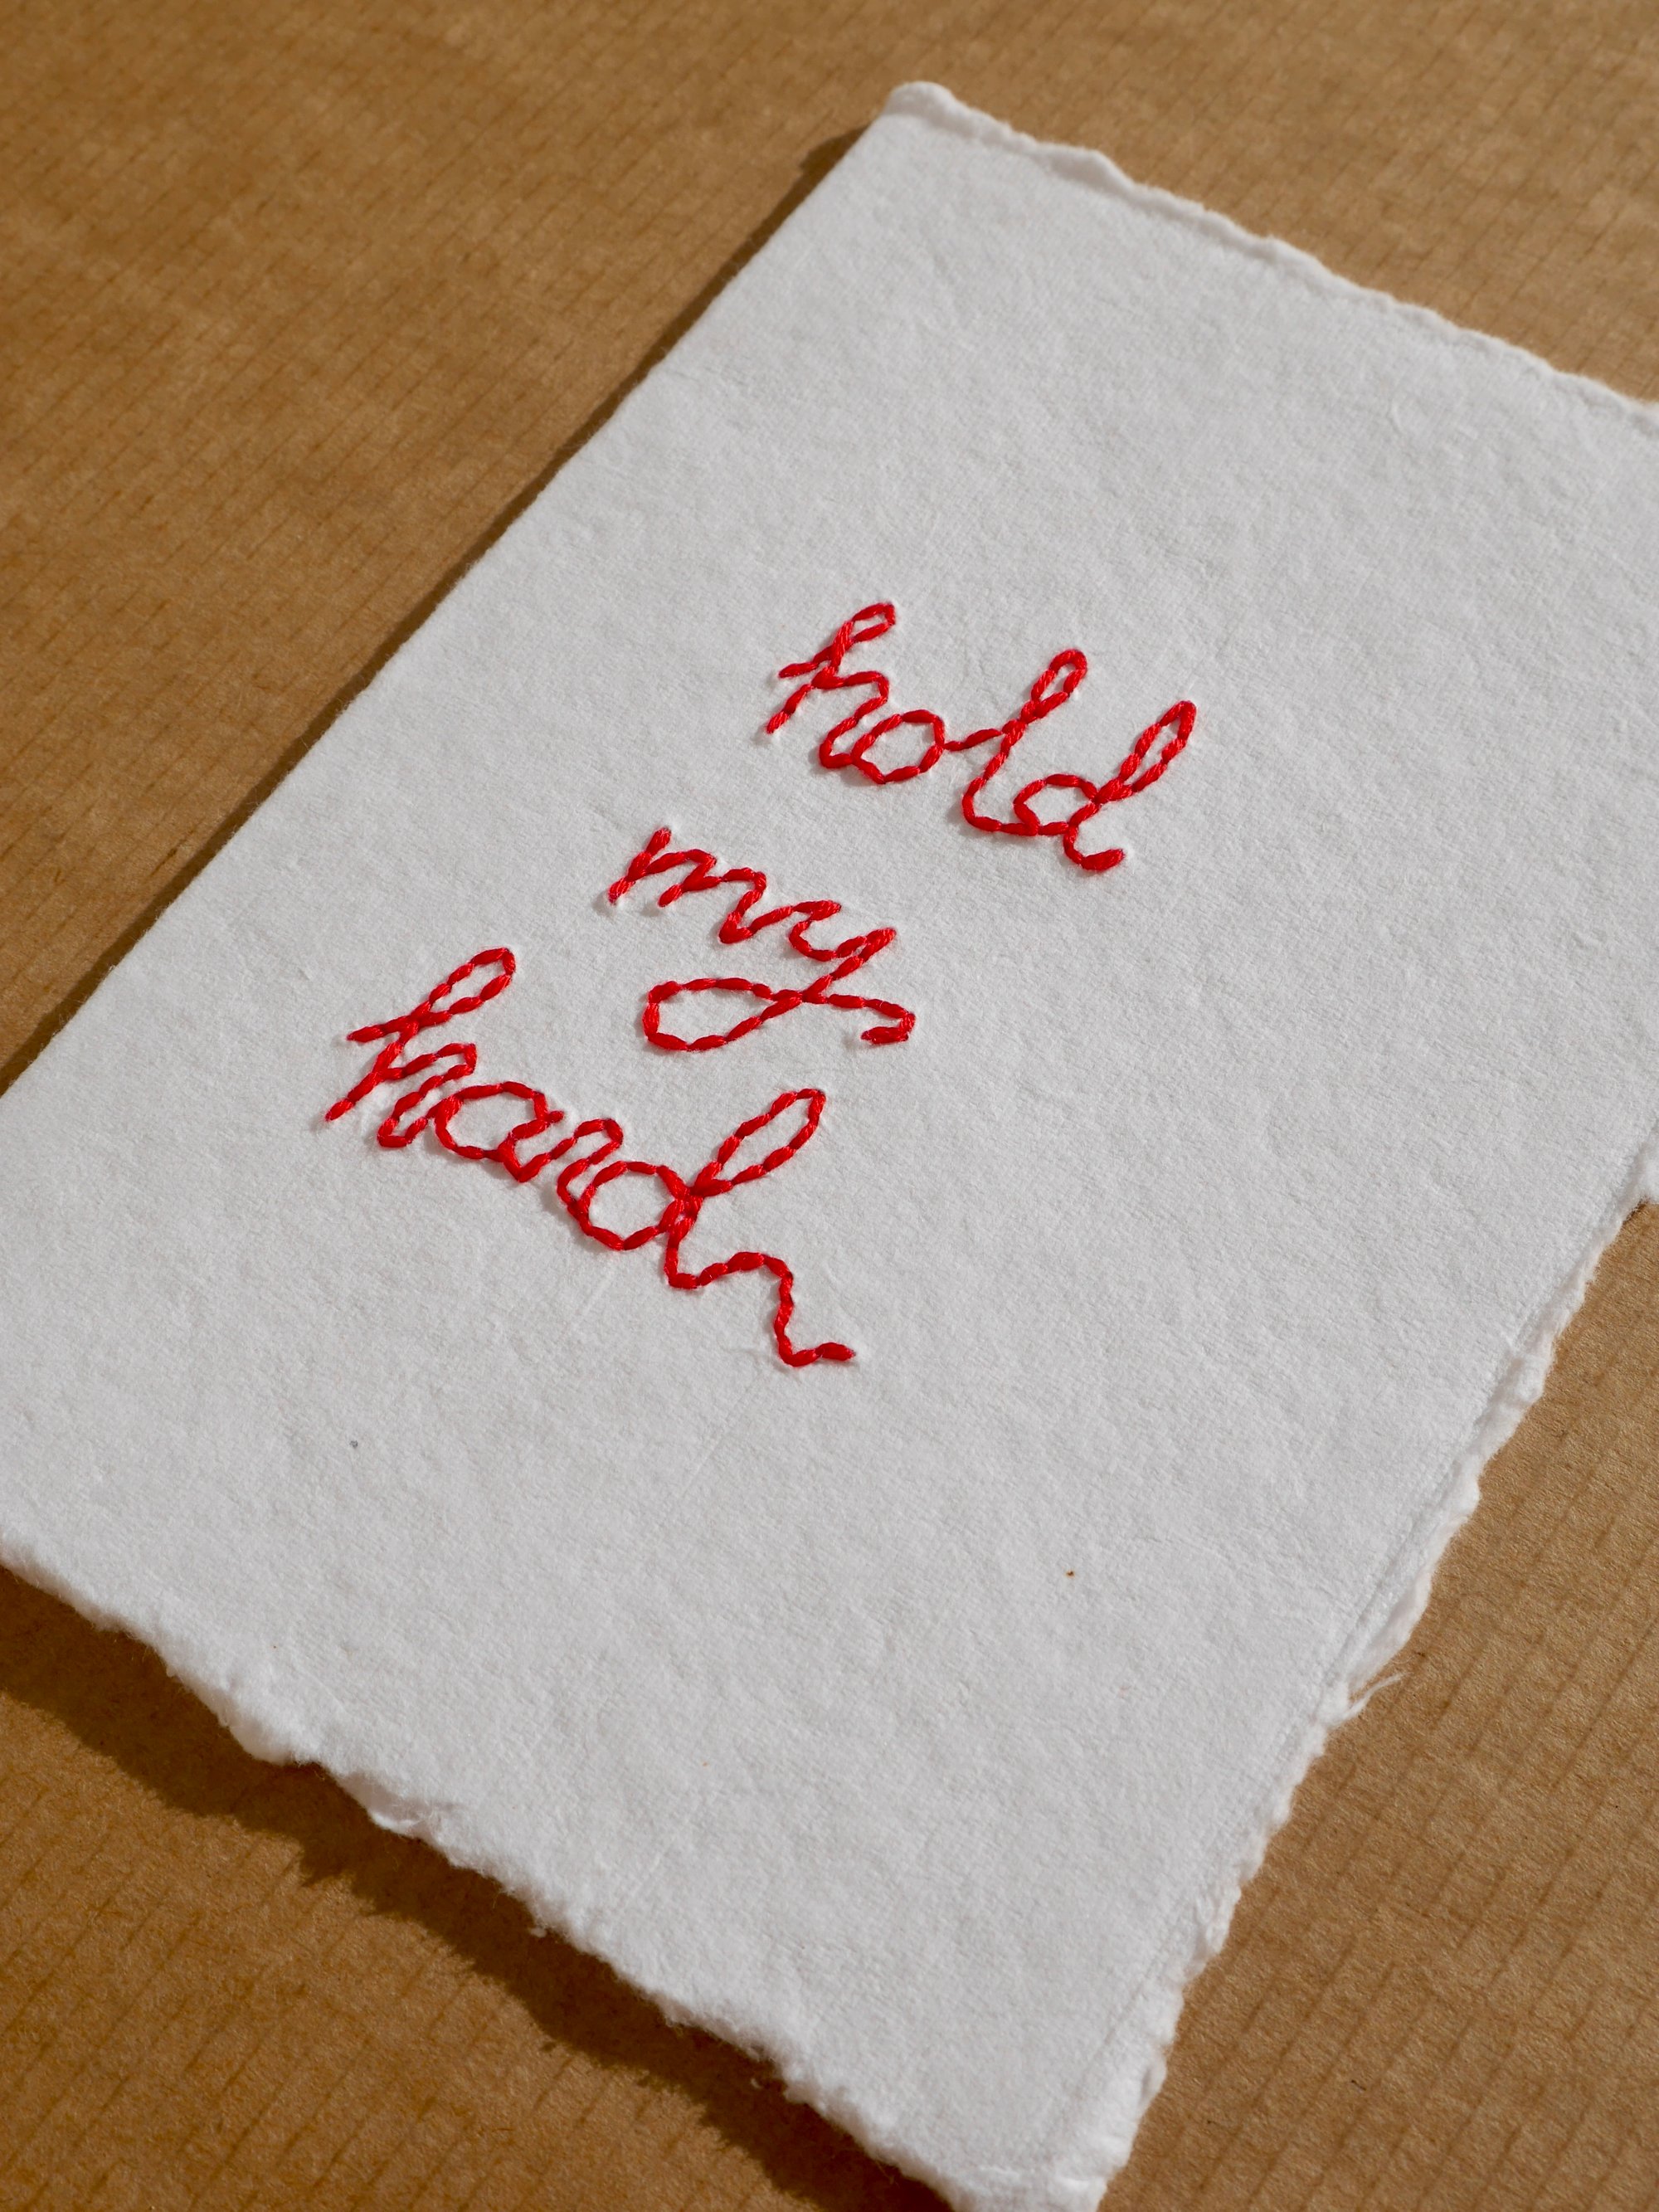 hold
my
hand